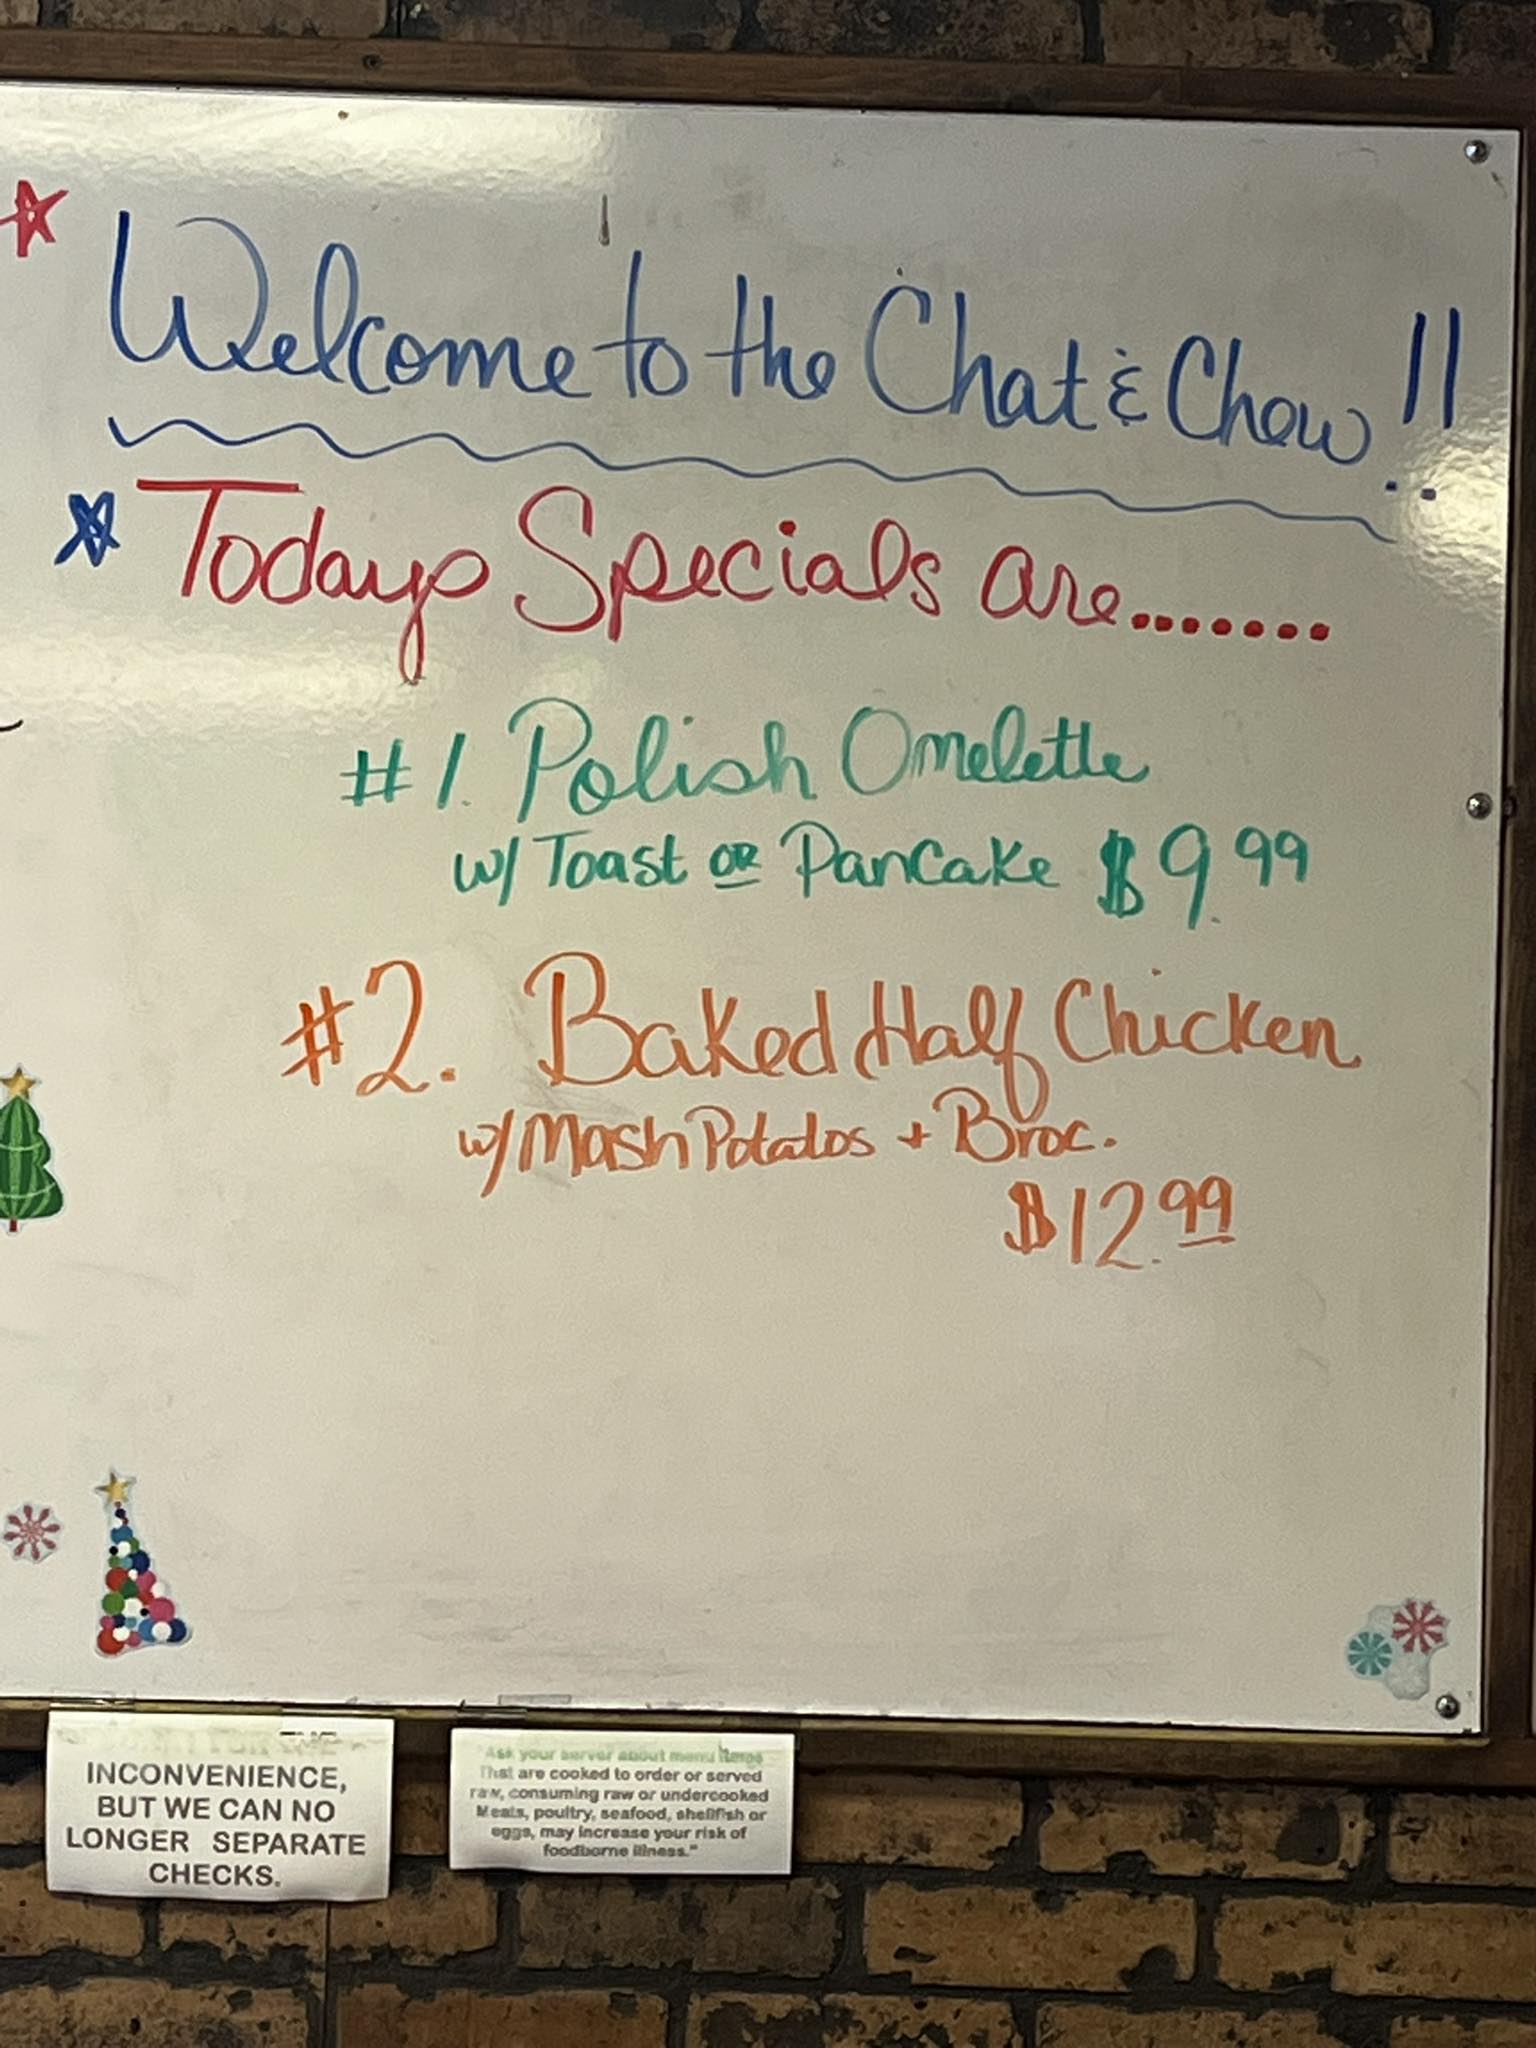 Welcome to the Chat & Chew!!
Todays Specials are........
#1. Polish Omelette
w/ Toast or Pancake $9.99
#2. Baked Half Chicken
w/ Mash Potatos + Broc.
$12.99
INCONVENIENCE,
BUT WE CAN NO
LONGER SEPARATE
CHECKS.
"Ask your server about menu items
That are cooked to order or served
raw, consuming raw or undercooked
Meats, poultry, seafood, shellfish or
eggs, may increase your risk of
foodborne illness."